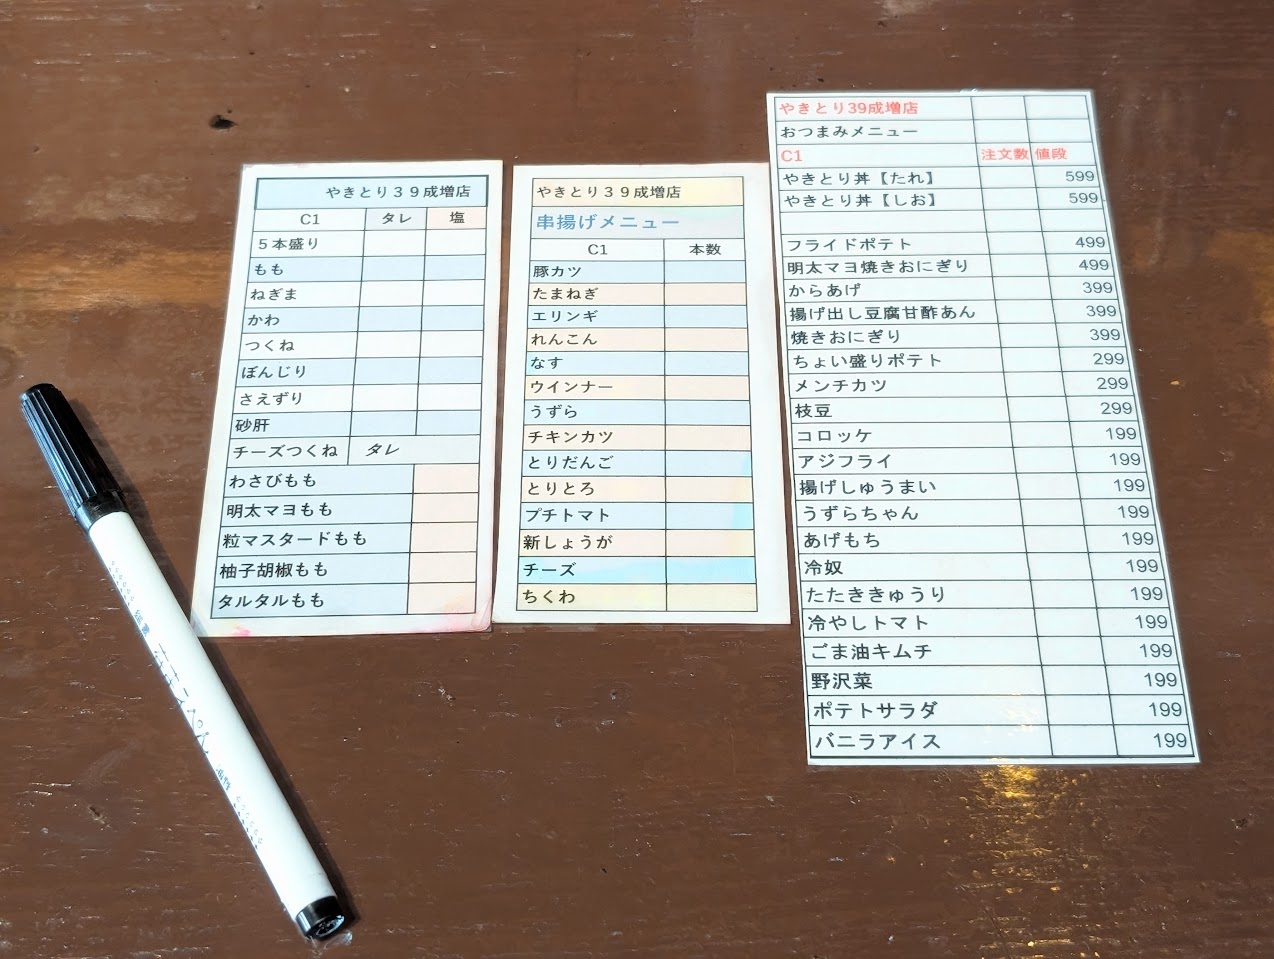 やきとり３９成増店
C1 タレ 塩
５本盛り
もも
ねぎま
かわ
つくね
ぼんじり
さえずり
砂肝
チーズつくね タレ
わさびもも
明太マヨもも
粒マスタードもも
柚子胡椒もも
タルタルもも
やきとり３９成増店
串揚げメニュー
C1 本数
豚カツ
たまねぎ
エリンギ
れんこん
なす
ウインナー
うずら
チキンカツ
とりだんご
とりとろ
プチトマト
新しょうが
チーズ
ちくわ
やきとり39成増店
おつまみメニュー
C1 注文数 値段
やきとり丼【たれ】 599
やきとり丼【しお】 599
フライドポテト 499
明太マヨ焼きおにぎり 499
からあげ 399
揚げ出し豆腐甘酢あん 399
焼きおにぎり 399
ちょい盛りポテト 299
メンチカツ 299
枝豆 299
コロッケ 199
アジフライ 199
揚げしゅうまい 199
うずらちゃん 199
あげもち 199
冷奴 199
たたききゅうり 199
冷やしトマト 199
ごま油キムチ 199
野沢菜 199
ポテトサラダ 199
バニラアイス 199